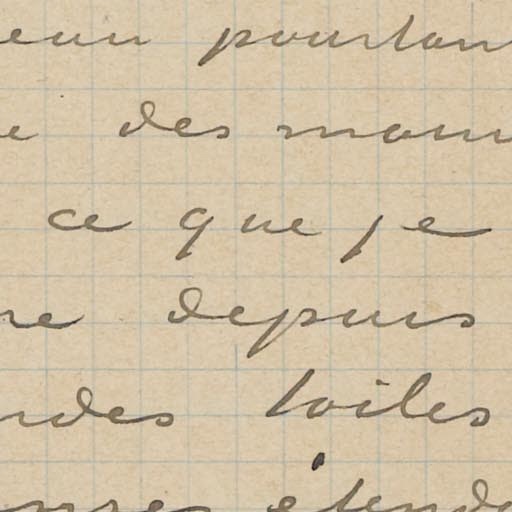 pourtant
des mom
ce que je
re depuis
ndes toiles
étend